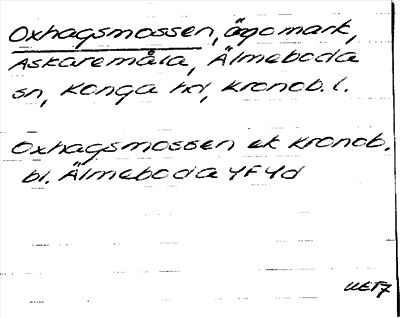 Oxhagsmossen, ägomark,
Askaremåla, Älmeboda
sn, Konga hd, Kronob. l.
Oxhagsmossen ek Kronob.
bl. Älmeboda 4F4d